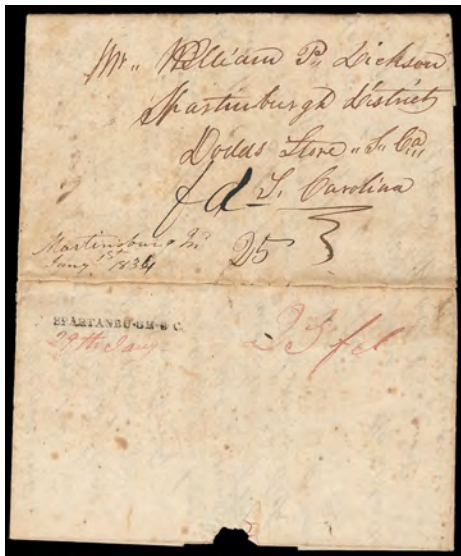 Mr,, William P. Dickson
Spartinburgh District
Dodds Store ,, S. Ca,,
fd S. Carolina
Martinsburg
Jany 1st 1834
25
SPARTANBU-GH-S C.
29th Jany
25 fd